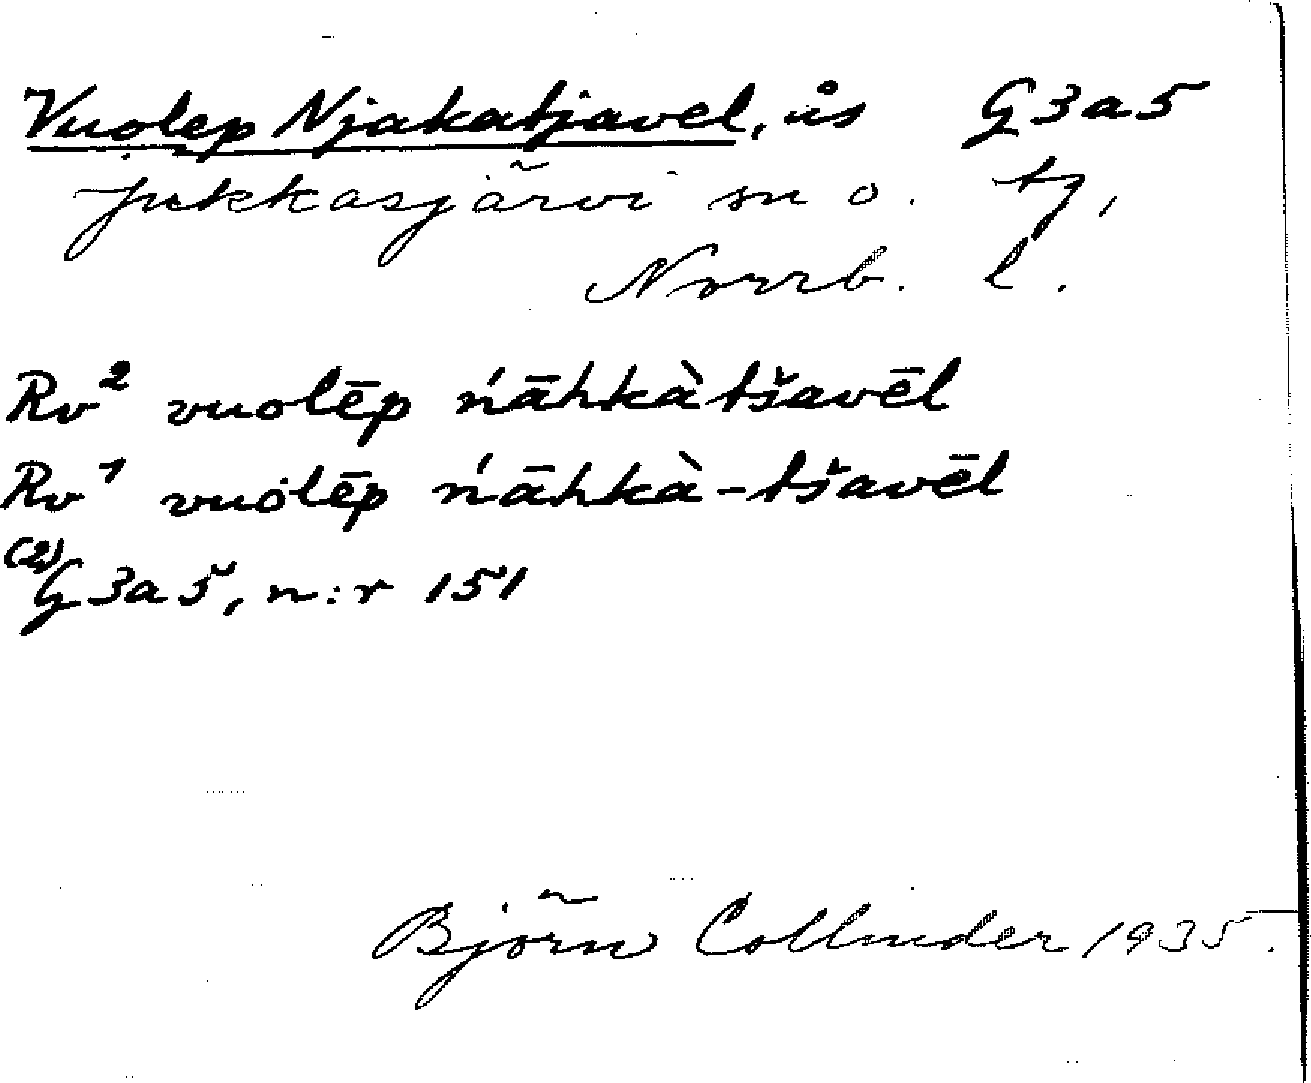 Vuolep Njakatjavel, ås G3a5
Jukkasjärvi sn o. tg,
Norrb. l.
Rv² vuolēp ńāhkàtšavēl
Rv¹ vuolēp ńāhkà-tšavēl
(2) G3a5, n:r 151
Björn Collinder 1935.